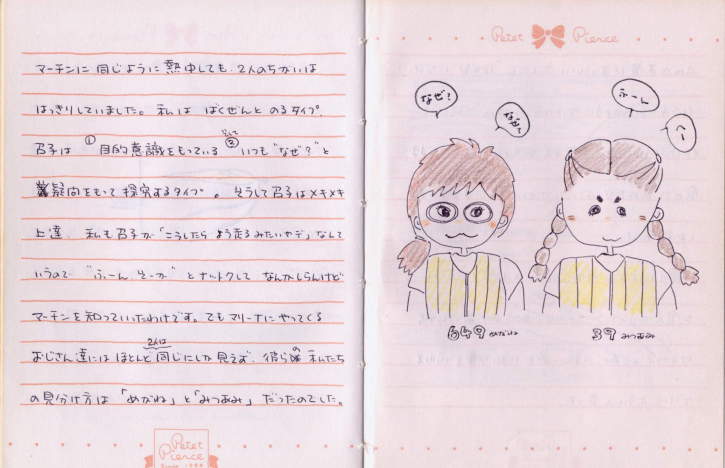 マーチンに同じように熱中しても、2人のちがいは
はっきりしていました。私は ばくぜんと のるタイプ、
召子は ①目的意識をもっている そして②いつも"なぜ?"と
疑問をもって探究するタイプ。そうして召子はメキメキ
上達 私も召子が「こうしたらよう走るみたいやで」なんて
いうので "ふーん そーか" とナットクして なんかしらんけど
マーチンを知っていたわけです。でもマリーナにやってくる
おじさん達には2人はほとんど同じにしか見えず、彼らの私たち
の見分け方は「めがね」と「みつあみ」だったのでした。
Petet Pierce
Petet Pierce
なぜ?
なぜ?
ふーん
へー
649 めがね
39 みつあみ